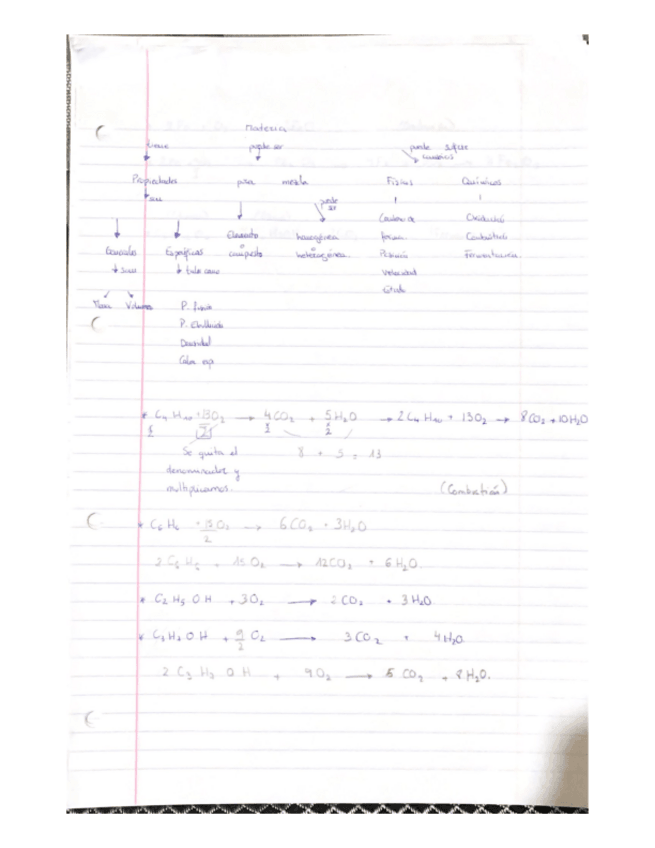 Materia
tiene puede ser puede sufrir
cambios
Propiedades pura mezcla Físicos Químicos
puede
ser
Cambio de Oxidación
Elemento homogénea forma Combustión
Generales Específicas compuesto o heterogénea Posición Fermentación
Velocidad
Estado
Masa Volumen P. fusión
P. Ebullición
Densidad
Calor esp
* C₄ H₁₀ + 13O₂ → 4CO₂ + 5H₂O → 2 C₄ H₁₀ + 13O₂ → 8CO₂ + 10H₂O
2
Se quita el 8 + 5 = 13
denominador y
multiplicamos. (Combustión)
* C₆ H₆ + 15 O₂ → 6CO₂ + 3H₂O
2
2 C₆ H₆ + 15 O₂ → 12CO₂ + 6H₂O.
* C₂ H₅ O H + 3O₂ → 2 CO₂ + 3H₂O
* C₃ H₇ O H + 9/2 O₂ → 3 CO₂ + 4H₂O
2 C₃ H₇ O H + 9O₂ → 6 CO₂ + 8H₂O.